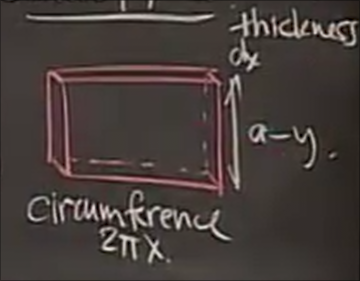 thickness
dx
a-y.
circumference
2πx.